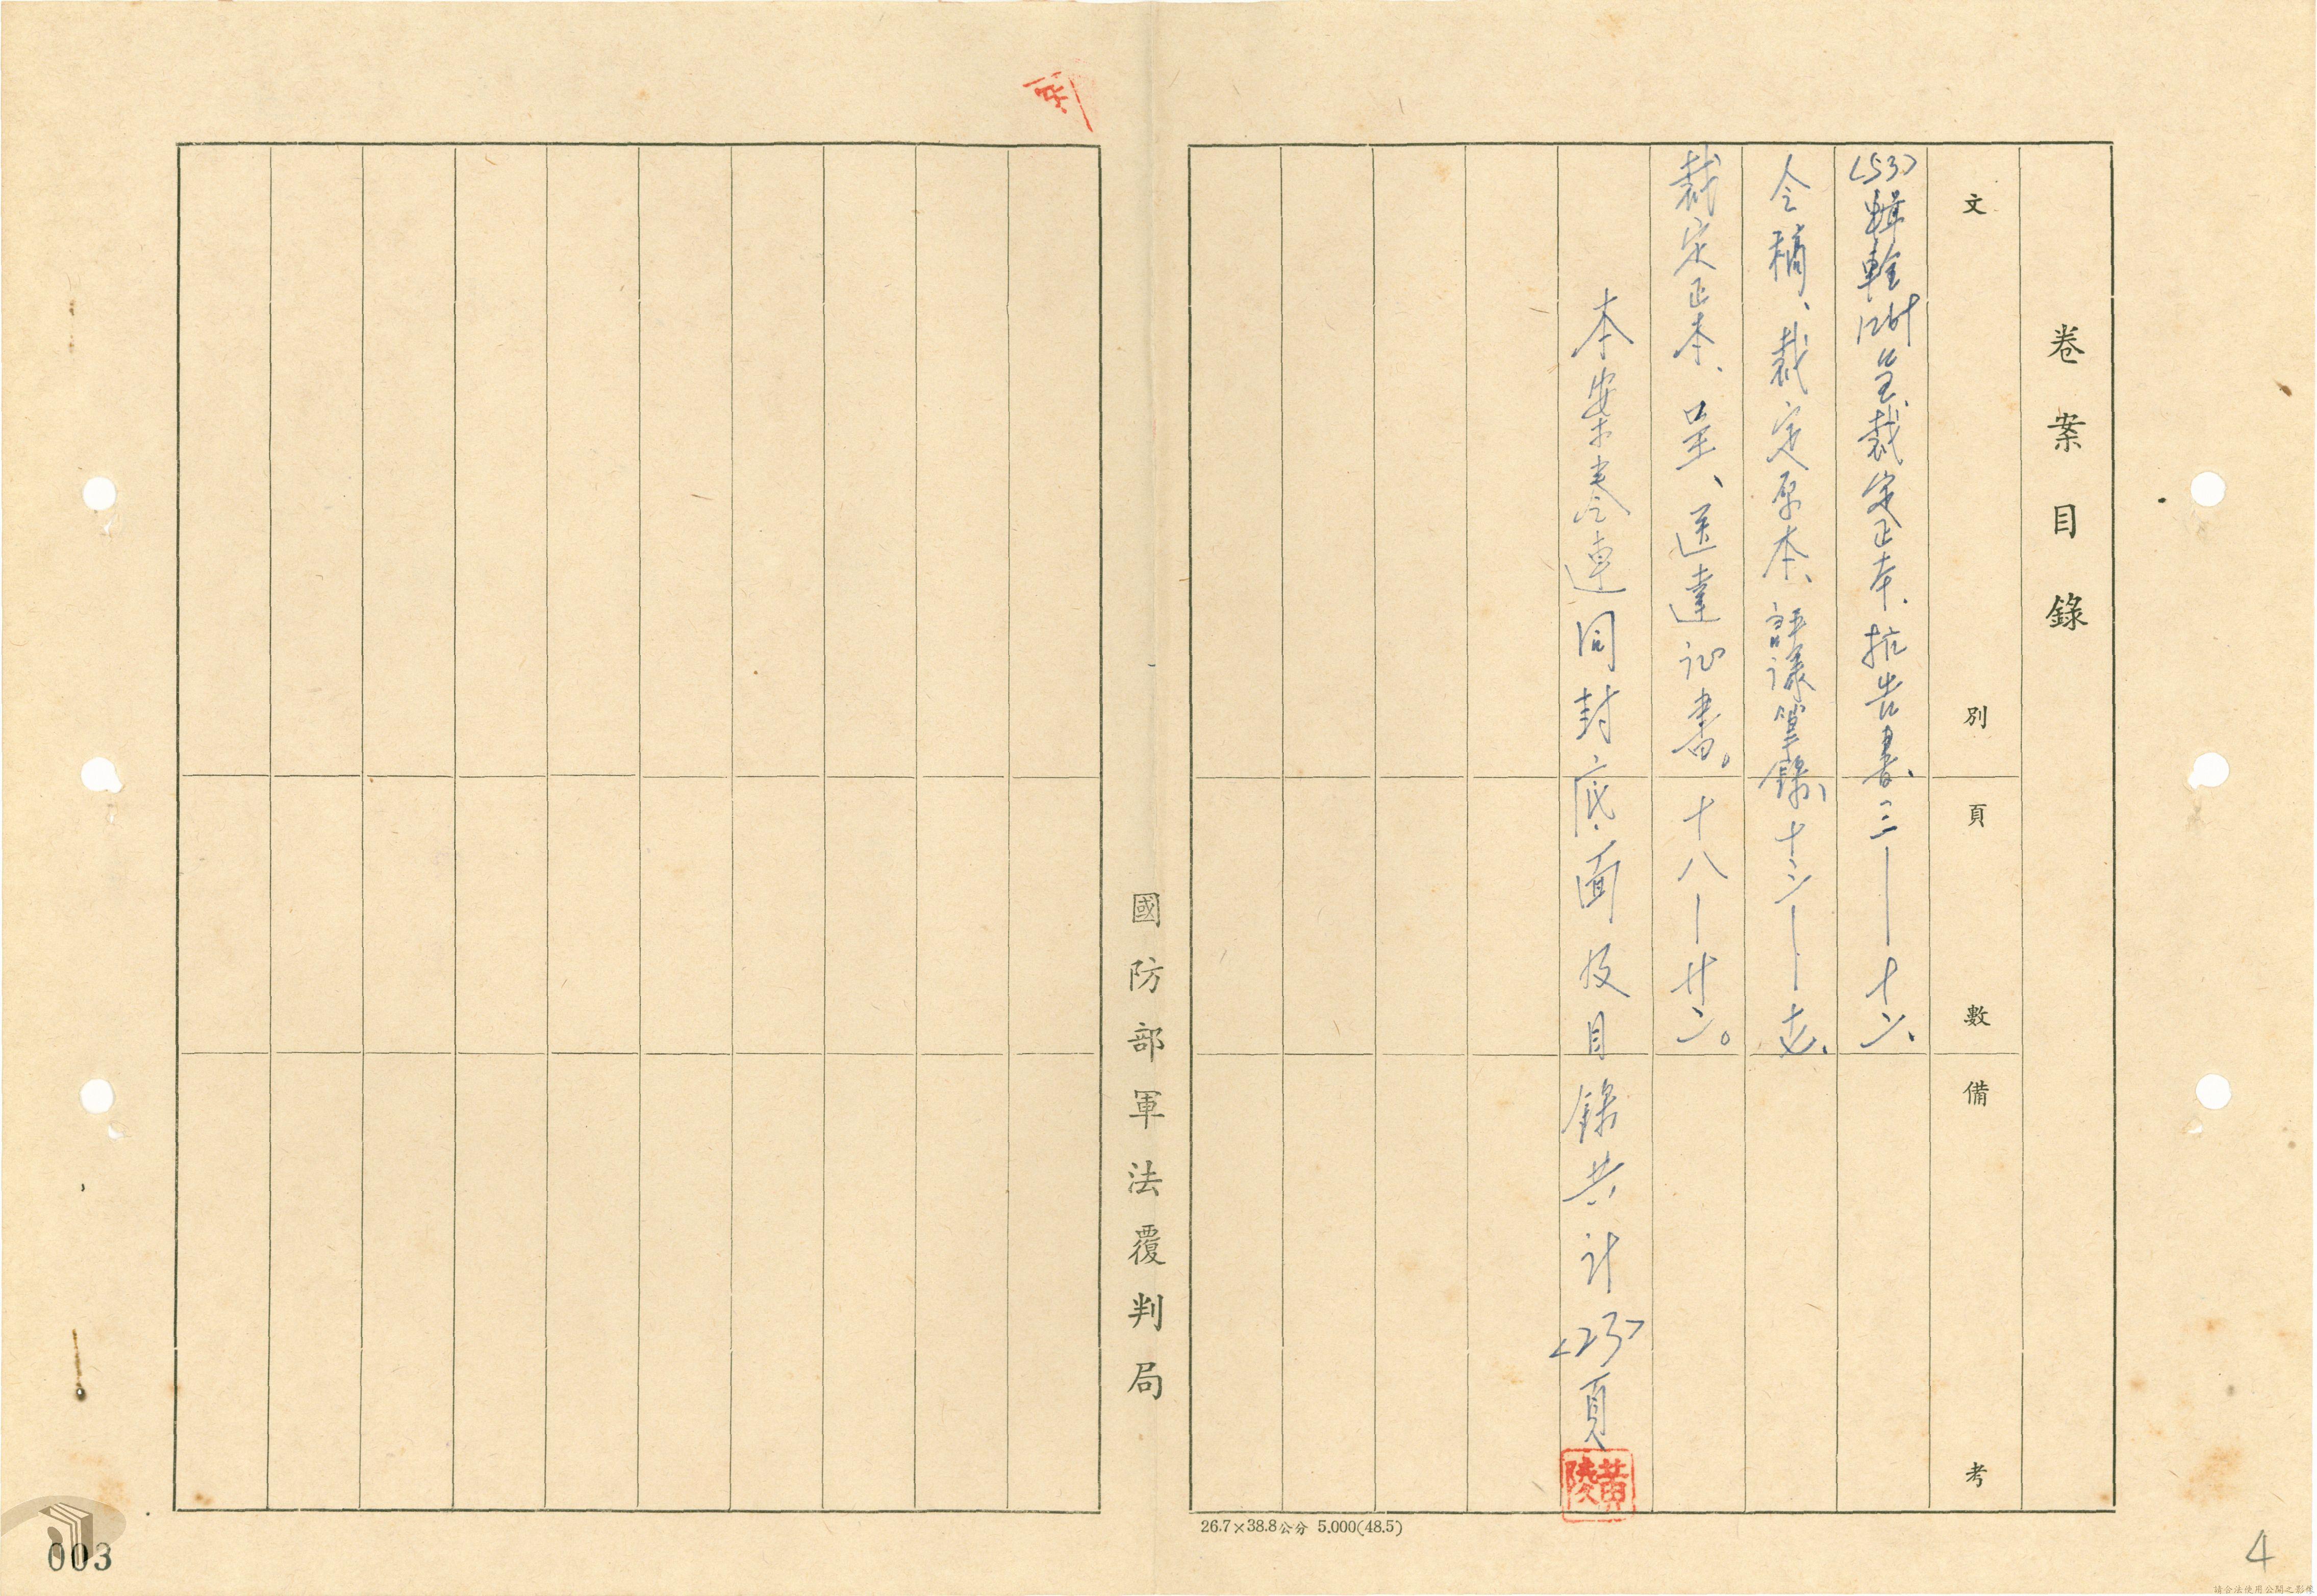 卷案目錄
文別 頁數 備考
(53)輯輇1261呈裁定正本、抗告書、三——十二、
令稿、裁定原本、評議筆錄、十三——十七、
裁定正本、呈、送達证書。十八——廿二。
本案卷連同封底面及目錄共計<23>頁
黃陵
國防部軍法覆判局
26.7×38.8公分 5.000(48.5)
003
4
請合法使用公開之影像